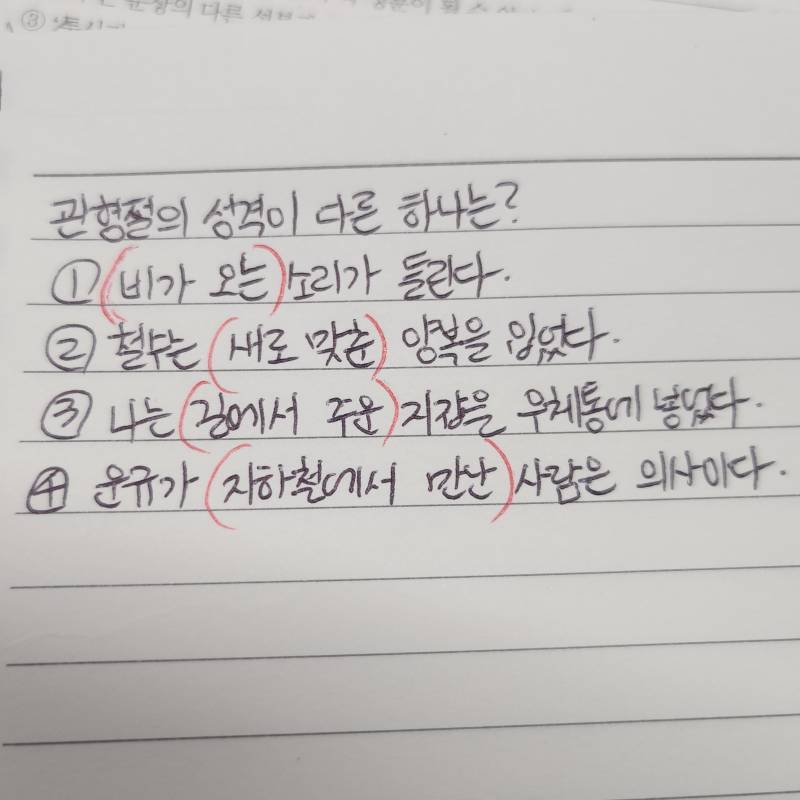 관형절의 성격이 다른 하나는?
① (비가 오는) 소리가 들린다.
② 철수는 (새로 맞춘) 양복을 입었다.
③ 나는 (길에서 주운) 지갑을 우체통에 넣었다.
④ 운규가 (지하철에서 만난) 사람은 의사이다.